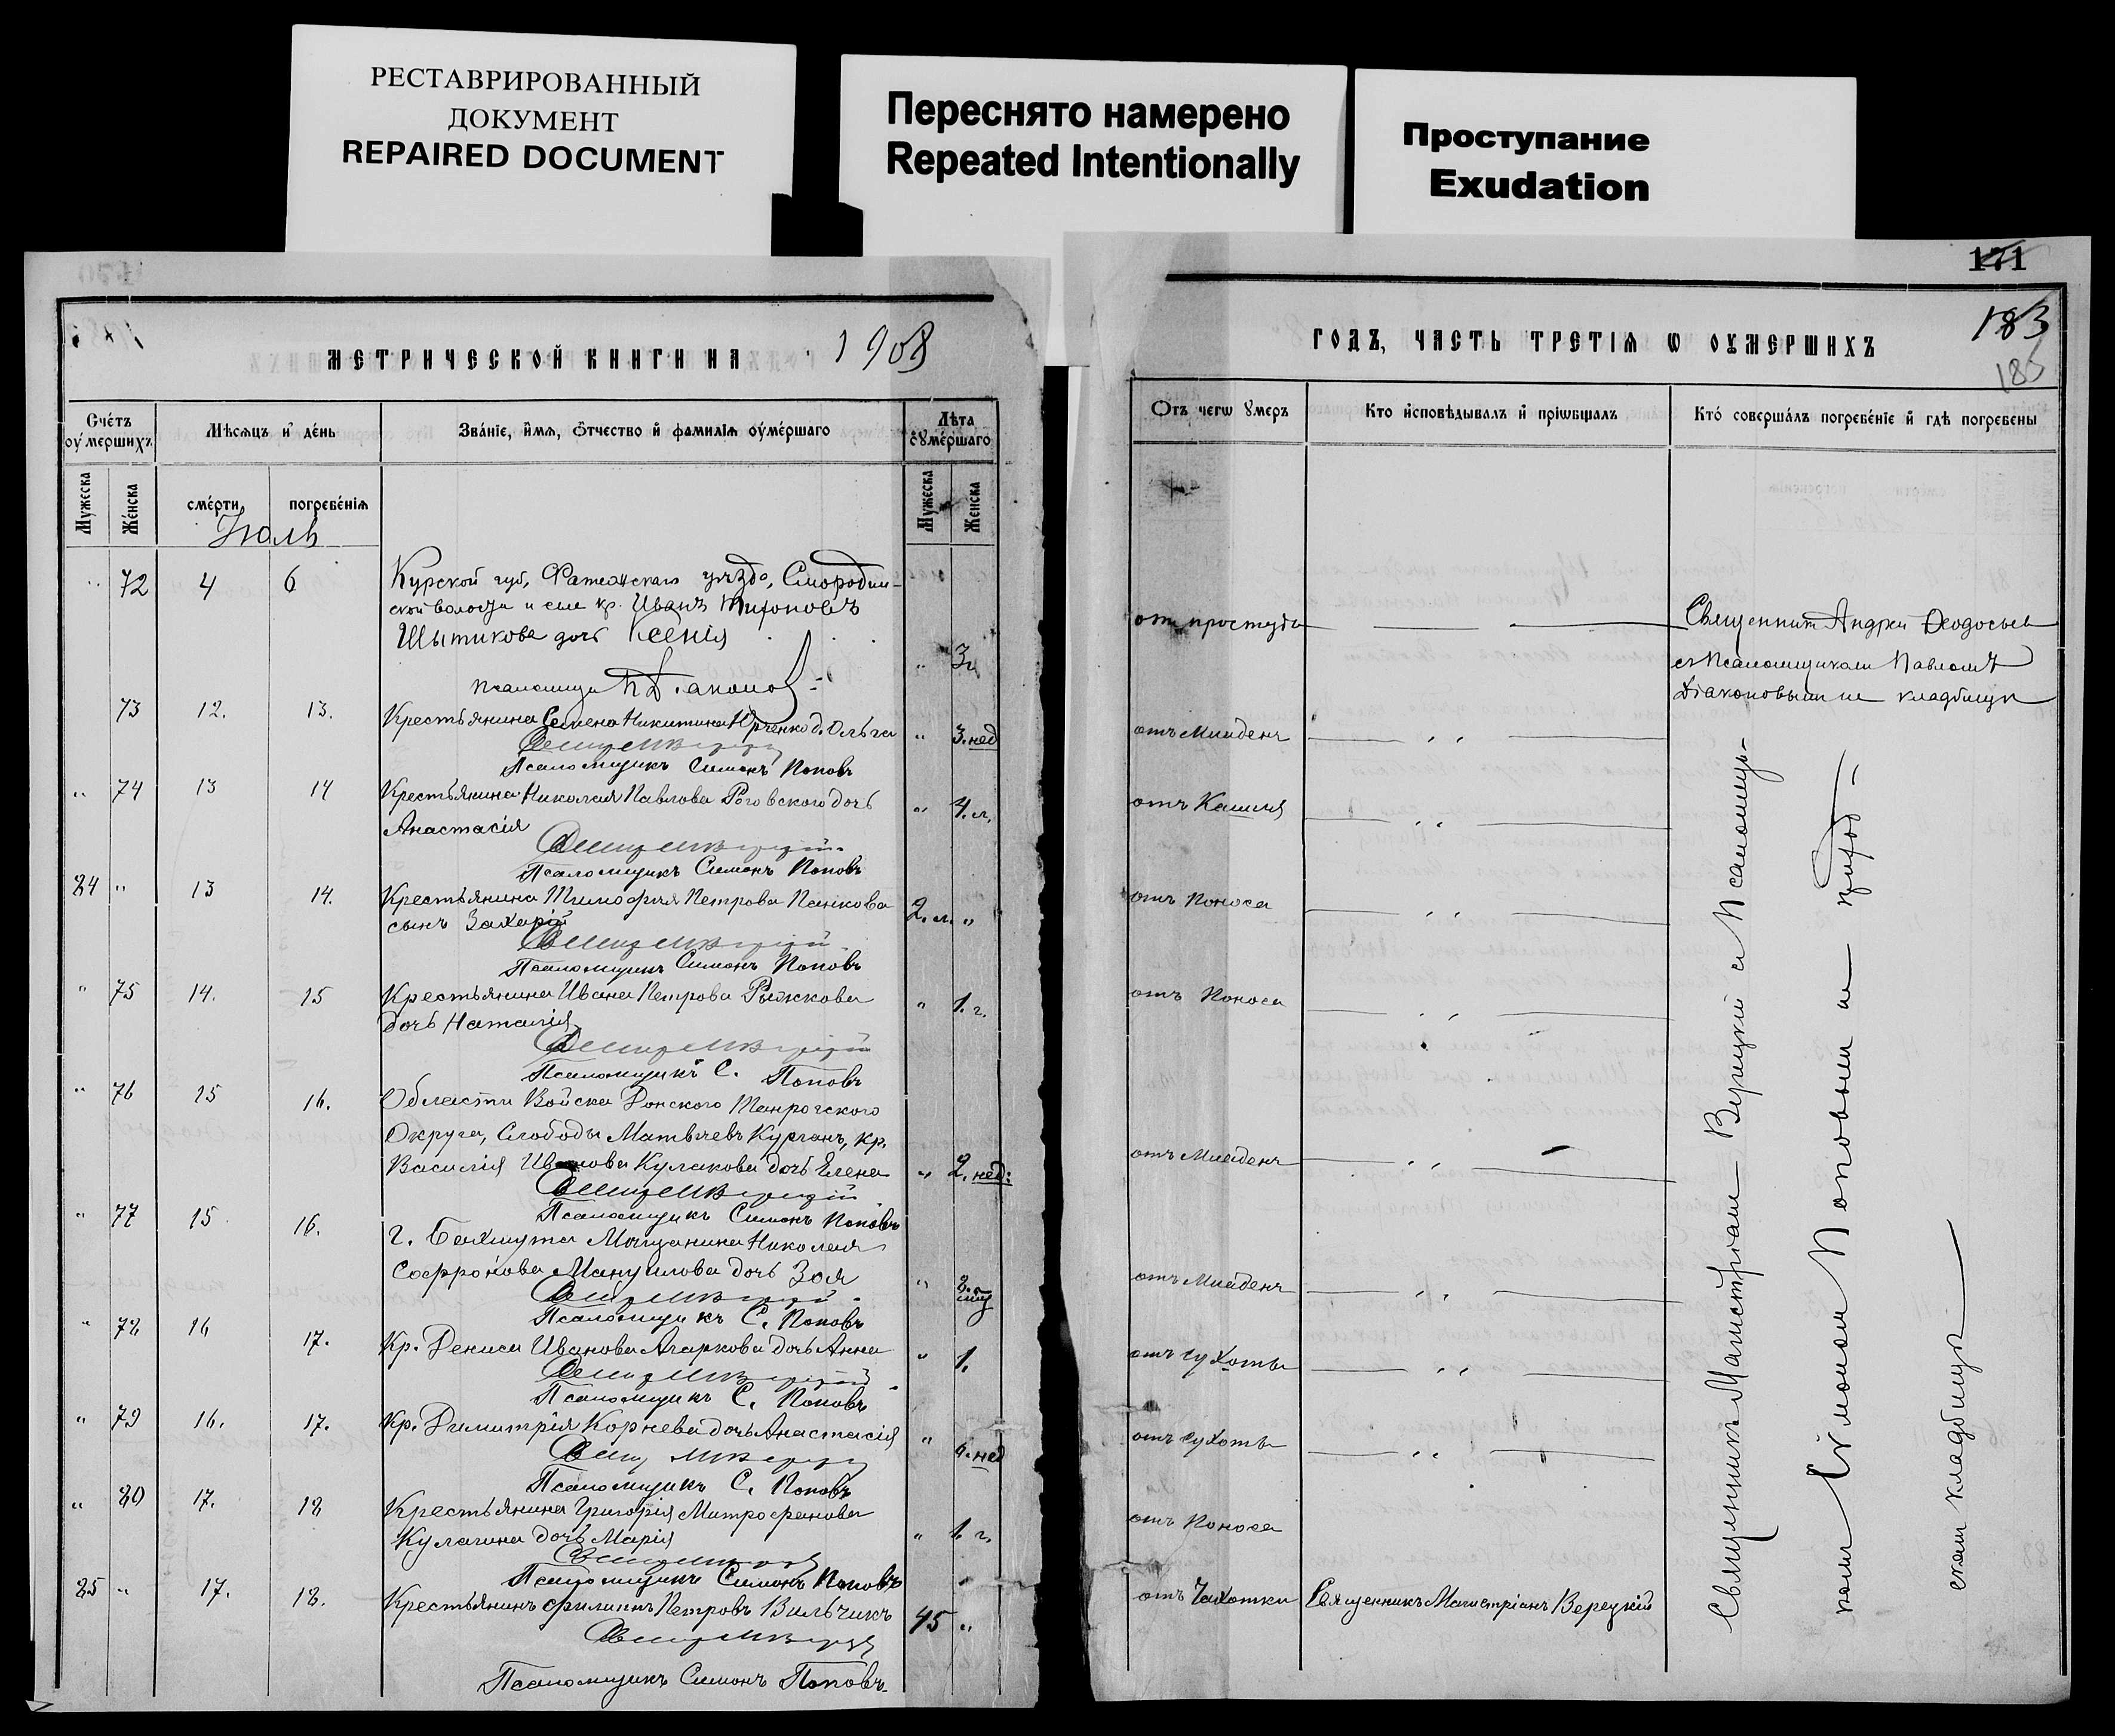 РЕСТАВРИРОВАННЫЙ
ДОКУМЕНТ
REPAIRED DOCUMENT
Переснято намерено
Repeated Intentionally
Проступание
Exudation
171
183
185
МЕТРИЧЕСКОЙ КНИГИ НА 1908
ГОДЪ, ЧАСТЬ ТРЕТІЯ Ѡ ОУМЕРШИХЪ
Счетъ оумершихъ
Мѣсяцъ и день
Званіе, имя, отчество и фамилія оумершаго
Лѣта оумершаго
Отъ чегѡ умеръ
Кто исповѣдывалъ и пріѡбщалъ
Кто совершалъ погребеніе и гдѣ погребены
Мужеска
Женска
смерти
погребенія
Мужеска
Женска
Іюль
" 72 4 6 Курской губ, Фатежскаго уѣзда, Смородин-
ской волости и села кр. Иванъ Тихоновъ
Шытикова дочь Ксенія " 3 г
отъ простуды
Священник Андрей Ѳеодосьев
съ Псаломщикомъ Павломъ
Діаконовым на кладбищѣ
Псаломщик П Діаконов
73 12. 13. Крестьянина Семена Никитина Юрченко д. Ольга " 3. нед отъ Младенч
Псаломщикъ Симонъ Поповъ
" 74 13 14 Крестьянина Николая Павлова Роговского дочь
Анастасія " 4. л. отъ Кашля
Псаломщикъ Симонъ Поповъ
84 " 13 14. Крестьянина Тимофея Петрова Панкова
сынъ Захарій 2. л. " отъ Поноса
Псаломщикъ Симонъ Поповъ
" 75 14. 15 Крестьянина Ивана Петрова Рыжкова
дочь Наталія " 1. г. отъ Поноса
Псаломщикъ С. Поповъ
" 76 15 16. Области Войска Донского Таганрогского
Округа, Слободы Матвѣевъ Курганъ, кр.
Василія Иванова Кулакова дочь Елена " 2. нед: отъ Младенч
Псаломщикъ Симонъ Поповъ
" 77 15 16. г. Бахмута Мѣщанина Николая
Софронова Мануилова дочь Зоя " отъ Младенч
Псаломщикъ С. Поповъ
" 78 16 17. Кр. Дениса Иванова Агаркова дочь Анна " 1. отъ сухоты
Псаломщикъ С. Поповъ
" 79 16. 17. Кр. Димитрія Корнева дочь Анастасія " 6. нед отъ сухоты
Псаломщикъ С. Поповъ
" 80 17. 18 Крестьянина Григорія Митрофанова
Кулагина дочь Марія " 1. г. отъ Поноса
Псаломщикъ Симонъ Поповъ
85 " 17. 18. Крестьянинъ Филиппъ Петровъ Вильчикъ 45 " отъ Чахотки Священникъ Магистріанъ Верецкій
Псаломщикъ Симонъ Поповъ
Священникъ Магистріан Верецкій с Псаломщи-
ком Симоном Поповым на приход-
скомъ кладбищѣ